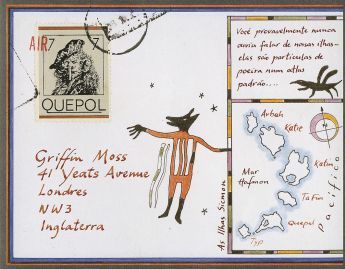 AIR 7 7
QUEPOL
Griffin Moss
41 Yeats Avenue
Londres
NW3
Inglaterra
Você provavelmente nunca
ouviu falar de nossas ilhas-
elas são partículas de
poeira num atlas
padrão....
Arbah
Katie
Katin
Mar
Hafmon
Ta Fin
Quepol
Typ
Pacífico
As Ilhas Sicmon